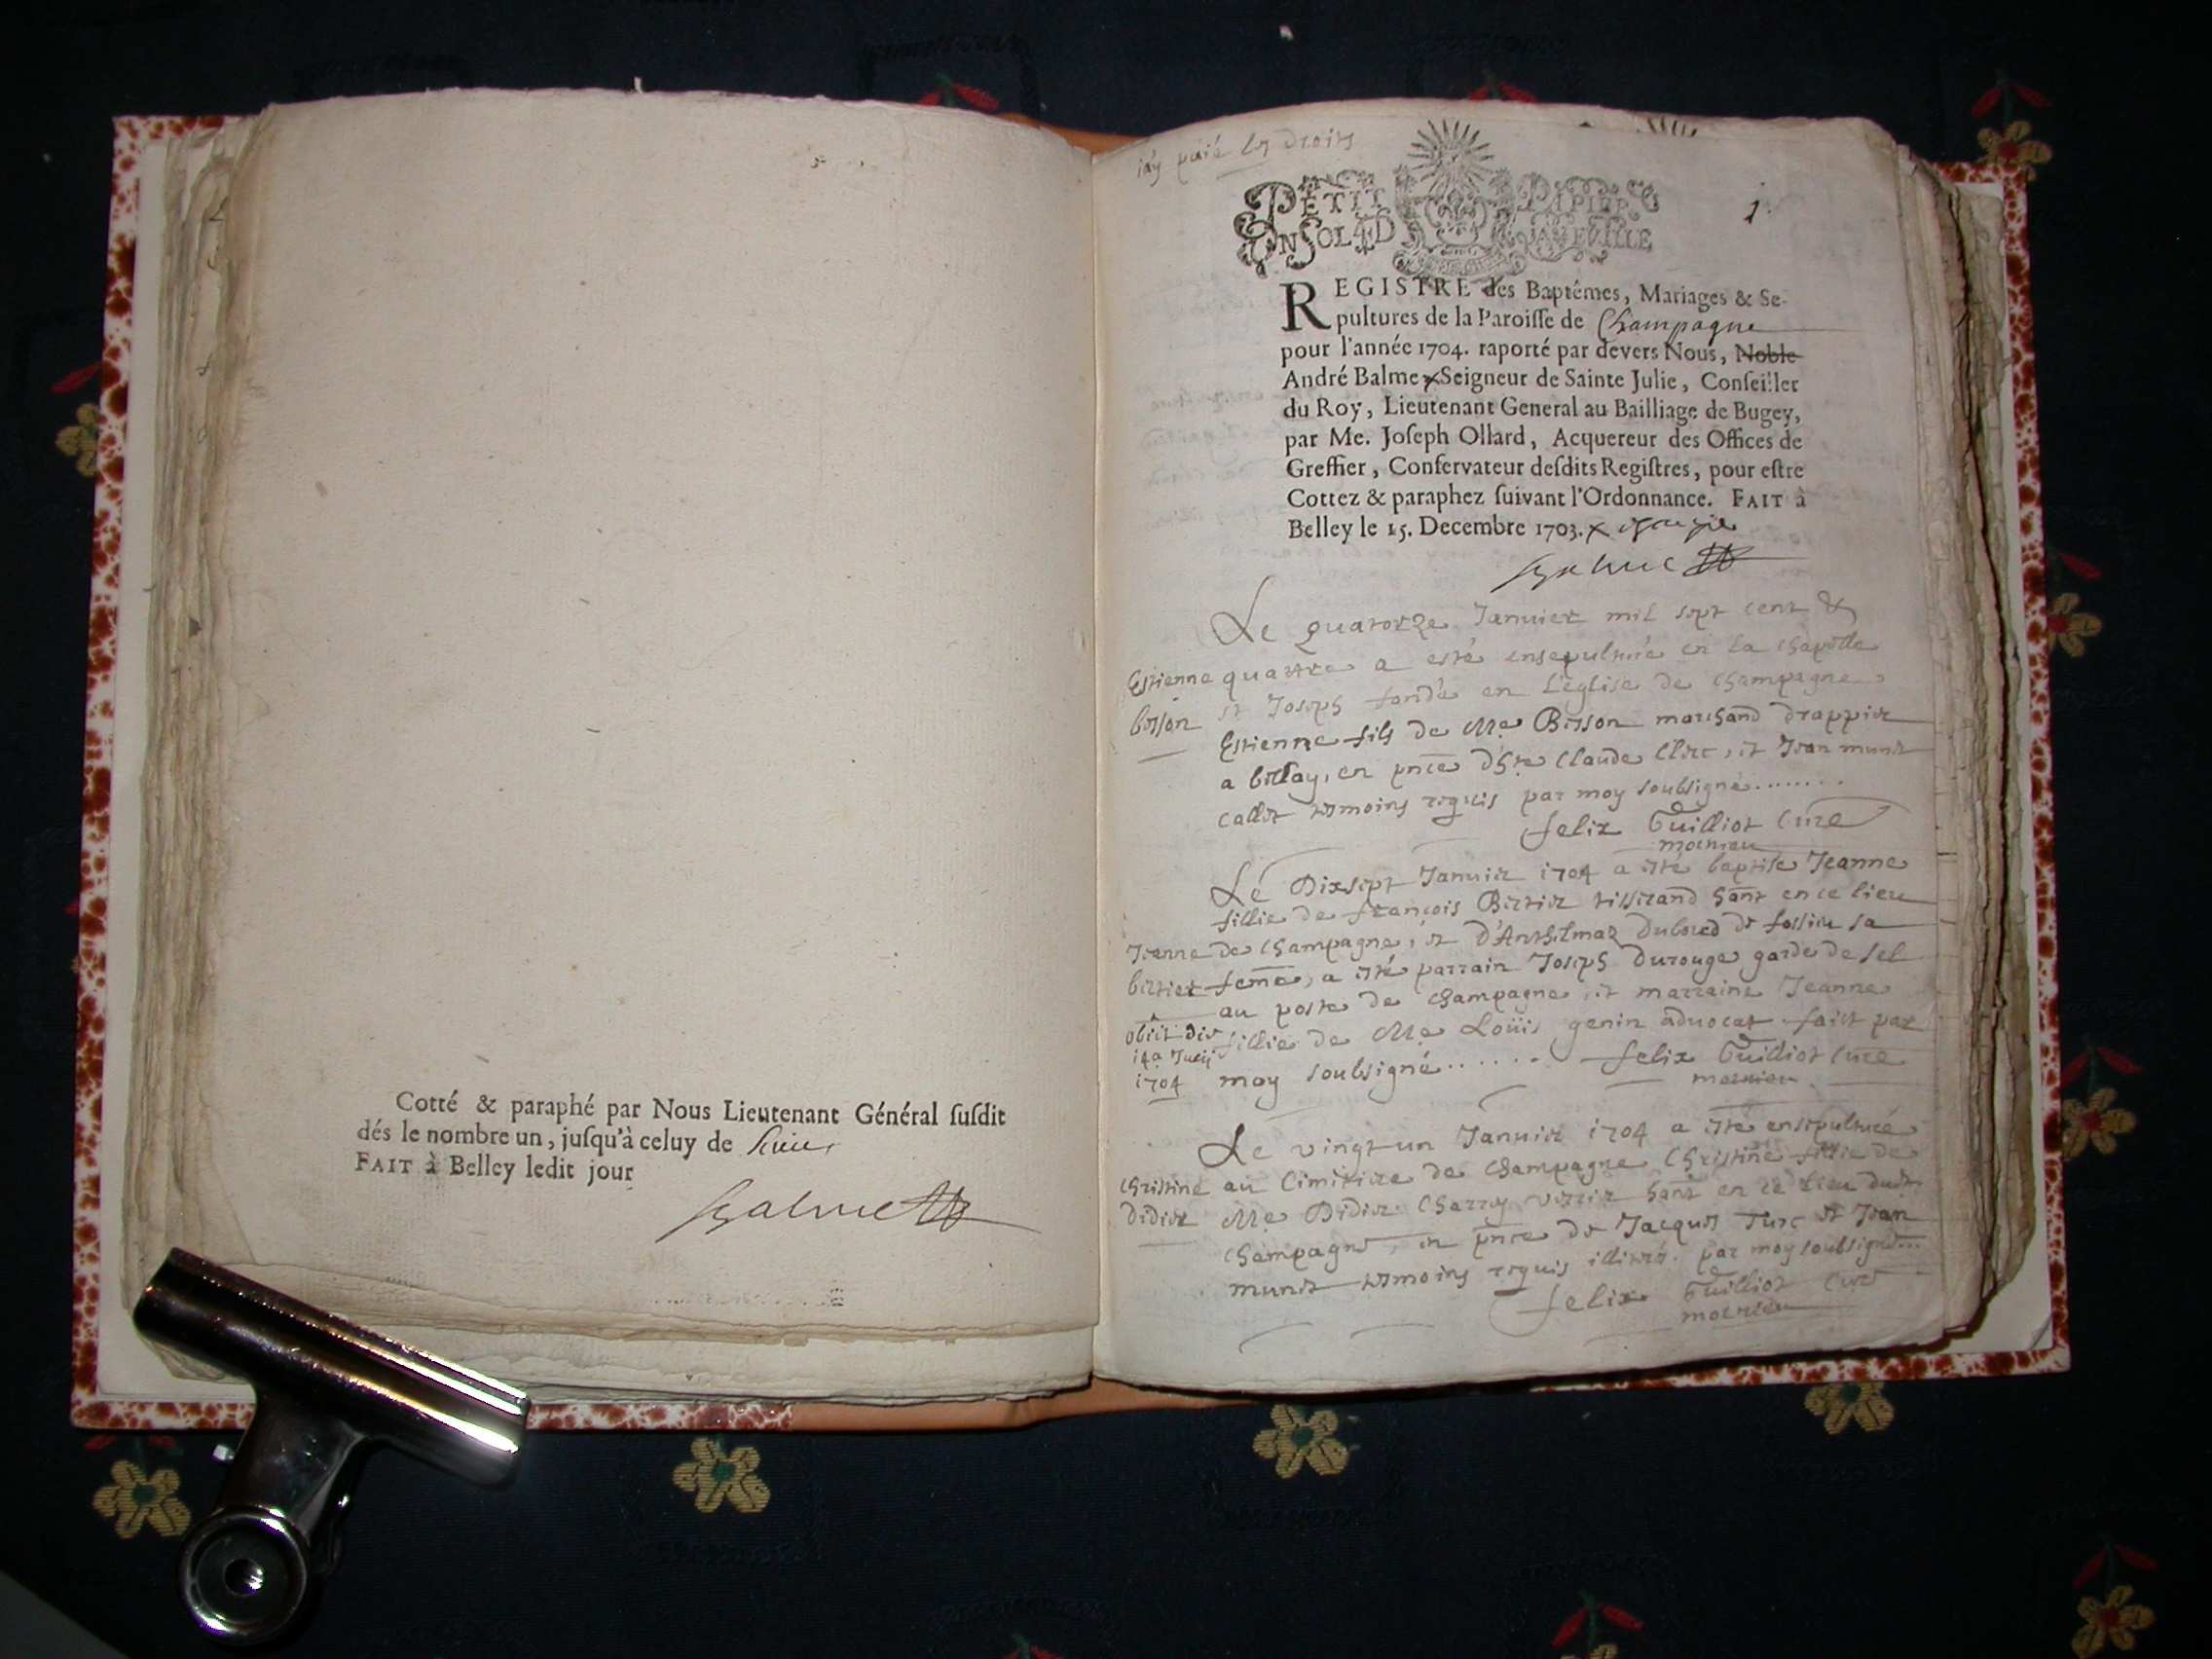 Cotté & paraphé par Nous Lieutenant Général ſuſdit
dés le nombre un, juſqu'à celuy de
FAIT à Belley ledit jour
Balme
iay paié les droits
PETIT PAPIER
UN SOL LA FEUILLE
1.
REGISTRE des Baptêmes, Mariages & Se-
pultures de la Paroiſſe de Champagne
pour l'année 1704. raporté par devers Nous, Noble
André Balme Seigneur de Sainte Julie, Conſeiller
du Roy, Lieutenant General au Bailliage de Bugey,
par Me. Joſeph Ollard, Acquereur des Offices de
Greffier, Conſervateur deſdits Regiſtres, pour eſtre
Cottez & paraphez ſuivant l'Ordonnance. FAIT à
Belley le 15. Decembre 1703.
Balme
Le quatorze Januier mil sept cent &
quattre a esté ensepulturé en la chapelle
st Joseph fondé en l'eglise de champagne
Estienne fils de Me Bisson marchand drappier
a bellay, en pnce d'hte Claude Clerc, et Jean munet
callet tesmoins requis par moy soubsigné........
Estienne
bisson
felix Guilliot curé
Le Dixsept Januier 1704 a esté baptisé Jeanne
fillie de françois Bertier tisserand hant en ce lieu
de champagne, et d'Anthelmaz Dubourd de fossieu sa
feme, a esté parrain Joseph Durouge garde de sel
au poste de champagne, et marraine Jeanne
fillie de Me Loüis genin aduocat faict par
moy soubsigné...... felix Guilliot curé
Jeanne
bertier
obiit die
14a Junij
1704
Le vingt un Januier 1704 a esté ensepulturée
au cimitiere de champagne Christine fillie de
Me Didier Charroy verrier hant en ce lieu dudt
champagne, en pnce de Jacques Turc et Jean
munet tesmoins requis illiterés par moy soubsigné...
Christine
didier
felix Guilliot curé